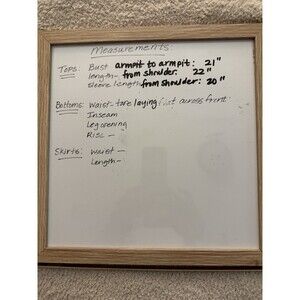 Measurements:
Tops: Bust armpit to armpit: 21"
length- from shoulder: 22"
sleeve length from shoulder: 20"
Bottoms: waist- tore laying flat across front
Inseam
Leg opening
Rise -
Skirts: waist -
Length -